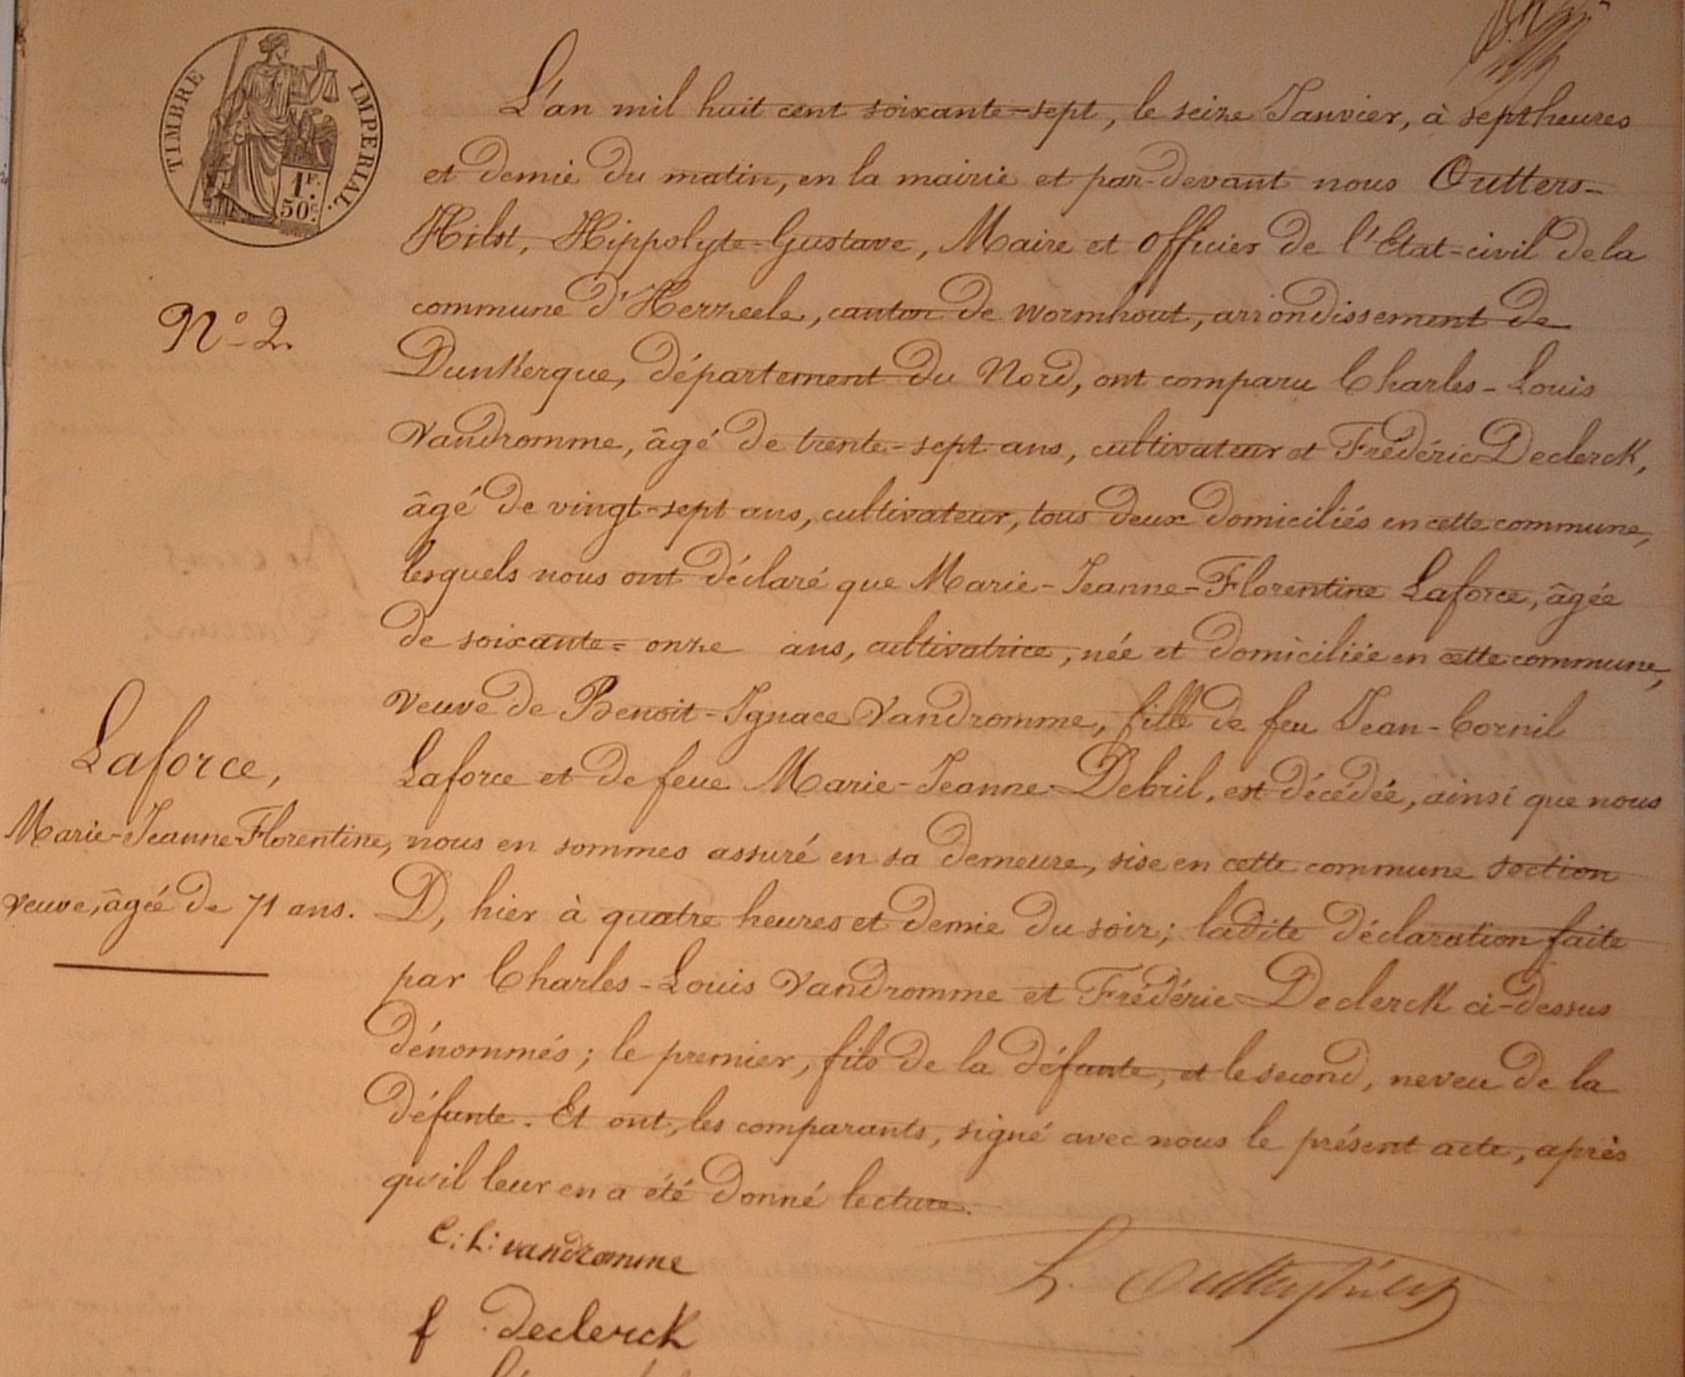 TIMBRE IMPERIAL.
1F.
50c.
L'an mil huit cent soixante-sept, le seize Janvier, à sept heures
et demie du matin, en la mairie et par-devant nous Outters-
Hilst, Hippolyte-Gustave, Maire et officier de l'Etat-civil de la
commune d'Herzeele, canton de Wormhout, arrondissement de
Dunkerque, département du Nord, ont comparu Charles-Louis
Vandromme, âgé de trente-sept ans, cultivateur et Frédéric Declerck,
âgé de vingt-sept ans, cultivateur, tous deux domiciliés en cette commune,
lesquels nous ont déclaré que Marie-Jeanne-Florentine Laforce, âgée
de soixante=onze ans, cultivatrice, née et domiciliée en cette commune,
veuve de Benoit-Ignace Vandromme, fille de feu Jean-Cornil
Laforce et de feue Marie-Jeanne Debril, est décédée, ainsi que nous
nous en sommes assuré en sa demeure, sise en cette commune section
D, hier à quatre heures et demie du soir; ladite déclaration faite
par Charles-Louis Vandromme et Frédéric Declerck ci-dessus
dénommés; le premier, fils de la défunte, et le second, neveu de la
défunte. Et ont, les comparants, signé avec nous le présent acte, après
qu'il leur en a été donné lecture.
N° 2.
Laforce,
Marie-Jeanne-Florentine,
veuve, âgée de 71 ans.
C: L: vandromme
f declerck